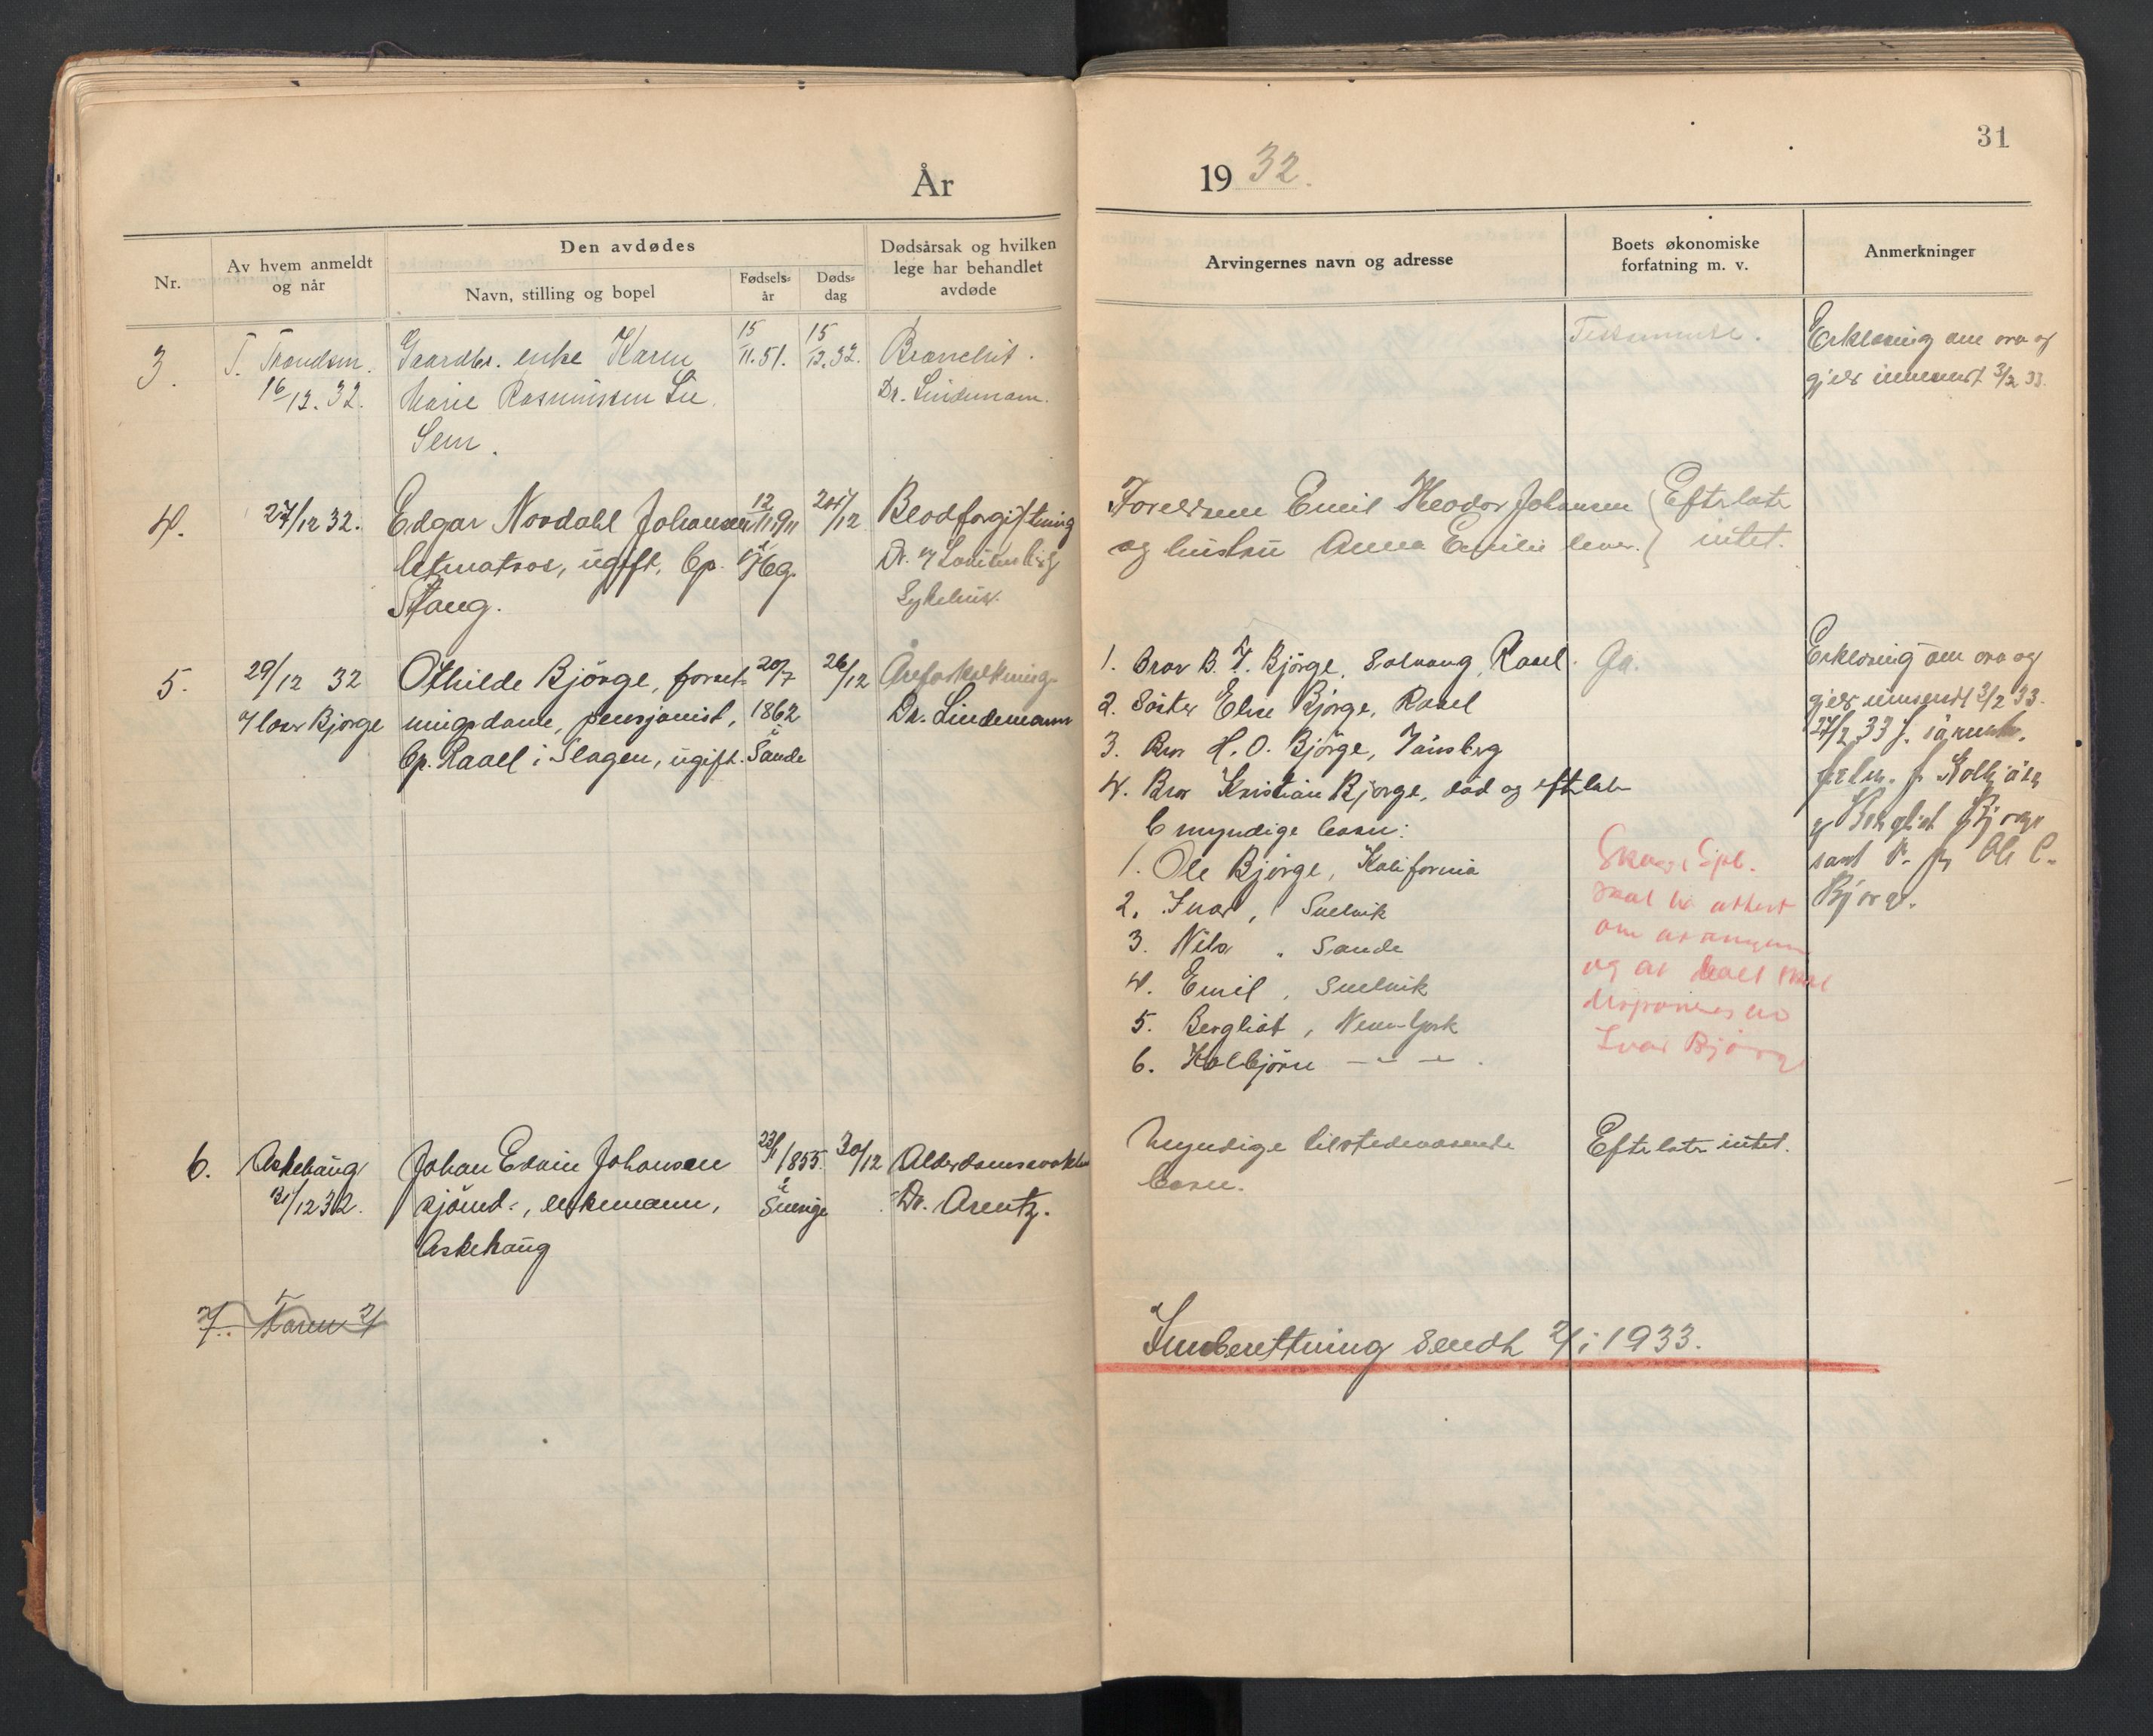 31
År 1932.
Nr.
Av hvem anmeldt
og når
Den avdødes
Navn, stilling og bopel
Fødsels-
år
Døds-
dag
Dødsårsak og hvilken
lege har behandlet
avdøde
Arvingernes navn og adresse
Boets økonomiske
forfatning m. v.
Anmerkninger
3.
T. Trondsen.
16/12.32.
Gaardbr. enke Karen
Marie Rasmussen Lie
Sem.
15/11.51.
15/12.32.
Bronchit.
Dr. Lindemann.
Testamente.
Erklæring om arv og
gjeld innsendt 3/2 33.
4.
27/12 32.
Edgar Nordahl Johansen
letmatros, ugift, bp.
Stang.
12/11 1911
i Tbg.
/12
Blodforgiftning
Dr.
Sykehus.
Foreldrene Emil Theodor Johansen
og hustru Anna Emilie lever.
Efterlater
intet.
5.
29/12 32
Ivar Bjørge
Othilde Bjørge, forret-
ningsdame, pensjonist,
bp. Raael i Slagen, ugift.
20/7
1862
i
Sande
26/12
Åreforkalkning
Dr. Lindemann
1. Bror B. T. Bjørge, Solvang, Raael.
2. Søster Elise Bjørge, Raael
3. Bror H. O. Bjørge, Tønsberg
4. Bror Kristian Bjørge, død og efterlater
6 myndige barn:
1. Ole Bjørge, Kalifornia
2. Ivar, Svelvik
3. Nils " Sande
4. Emil, Svelvik
5. Bergliot, New York
6. Kolbjørn — " —.
Ja.
skal ha attest
om arvingene
og at boet skal
disponeres av
Ivar Bjørge
Erklæring om arv og
gjeld innsendt 3/2 33.
27/2 33
Kolbjørn
og Bergliot Bjørge
samt Ole C.
Bjørge.
6.
Askehaug
31/12 32.
Johan Edvin Johansen
sjømd:, enkemann,
Askehaug
23/1 1855.
i
Sverige
30/12
Alderdomssvakhet
Dr. Arentz.
Myndige tilstedeværende
barn.
Efterlater intet.
7. Karen
Innberettning sendt 2/1 1933.